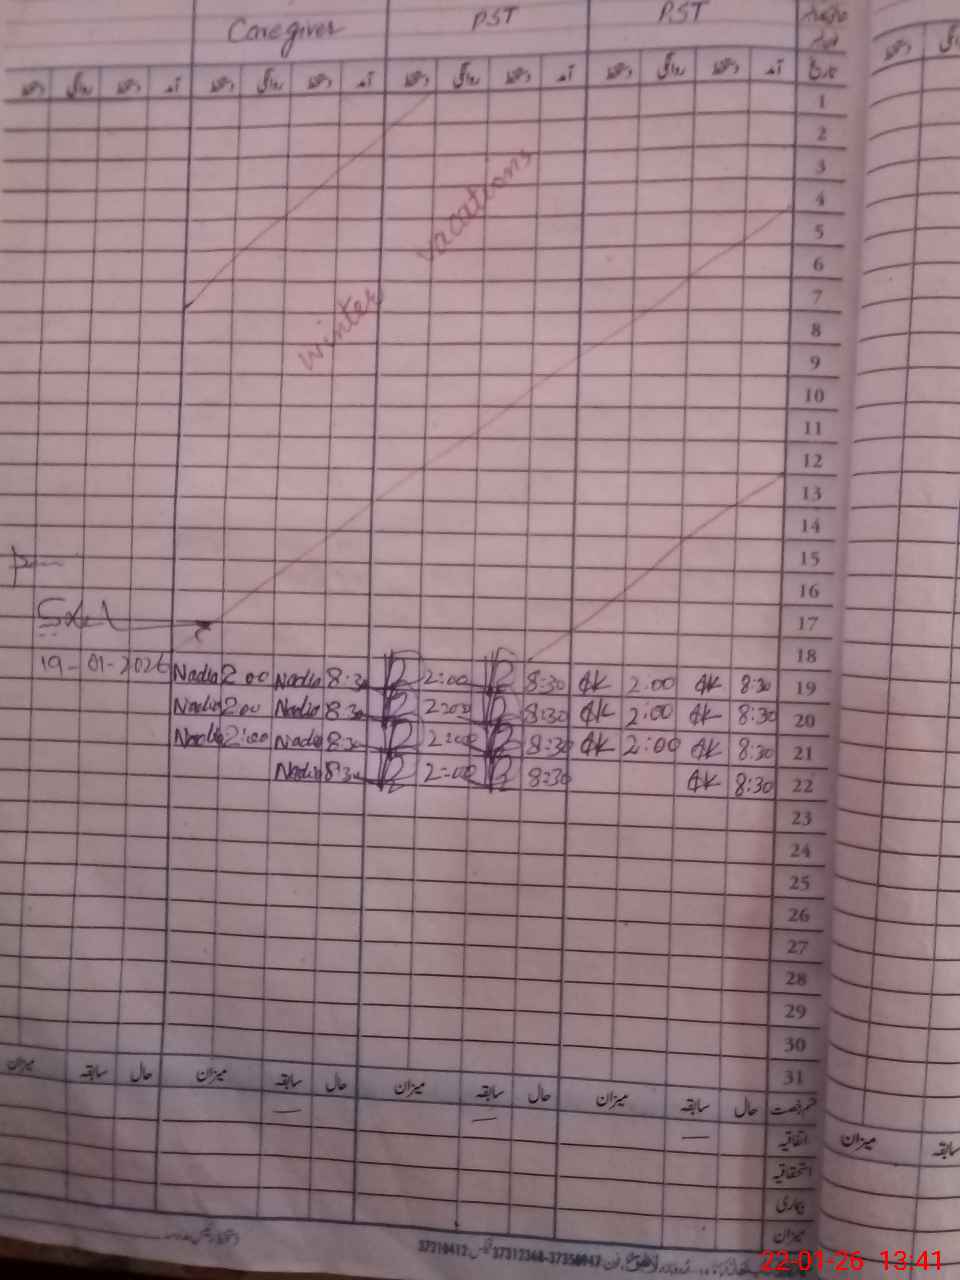 Caregiver PST PST
آمد دستخط روانگی دستخط آمد دستخط روانگی دستخط آمد دستخط روانگی دستخط آمد دستخط روانگی دستخط
1
2
3
4
5
6
7
8
9
10
11
12
13
14
15
16
17
18
winter vacations
19-01-2026 Nadia 2:00 Nadia 8:30 2:00 8:30 AK 2:00 AK 8:30 19
Nadia 2:00 Nadia 8:30 2:00 8:30 AK 2:00 AK 8:30 20
Nadia 2:00 Nadia 8:30 2:00 8:30 AK 2:00 AK 8:30 21
Nadia 8:30 2:00 8:30 AK 8:30 22
23
24
25
26
27
28
29
30
31
قسم رخصت حال سابقہ میزان حال سابقہ میزان حال سابقہ میزان حال سابقہ میزان
اتفاقیہ
استحقاقیہ
بیماری
میزان
میزان سابقہ
22-01-26 13:41